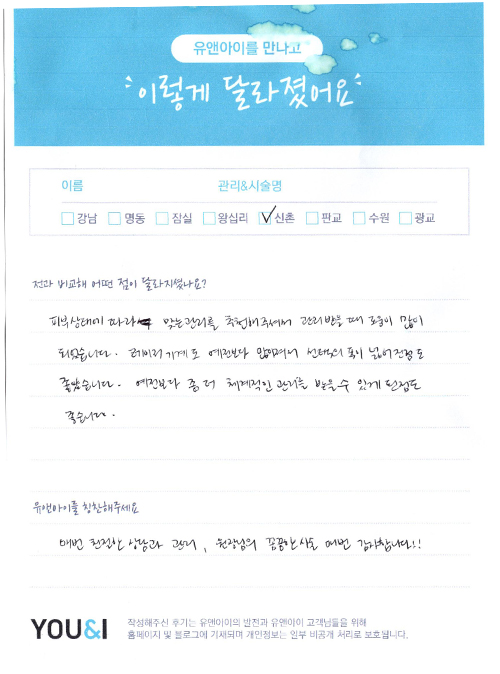 유앤아이를 만나고
이렇게 달라졌어요
이름 관리&시술명
강남 명동 잠실 왕십리 신촌 판교 수원 광교
전과 비교해 어떤 점이 달라지셨나요?
피부상태에 따라 맞는 관리를 추천해주셔서 관리받을 때 도움이 많이
되었습니다. 레이저 기계도 예전보다 많아져서 선택의 폭이 넓어진점도
좋았습니다. 예전보다 좀 더 체계적인 관리를 받을 수 있게 된점도
좋습니다.
유앤아이를 칭찬해주세요
매번 친절한 상담과 관리, 원장님의 꼼꼼한 시술 매번 감사합니다!!
YOU&I
작성해주신 후기는 유앤아이의 발전과 유앤아이 고객님들을 위해
홈페이지 및 블로그에 기재되며 개인정보는 일부 비공개 처리로 보호됩니다.